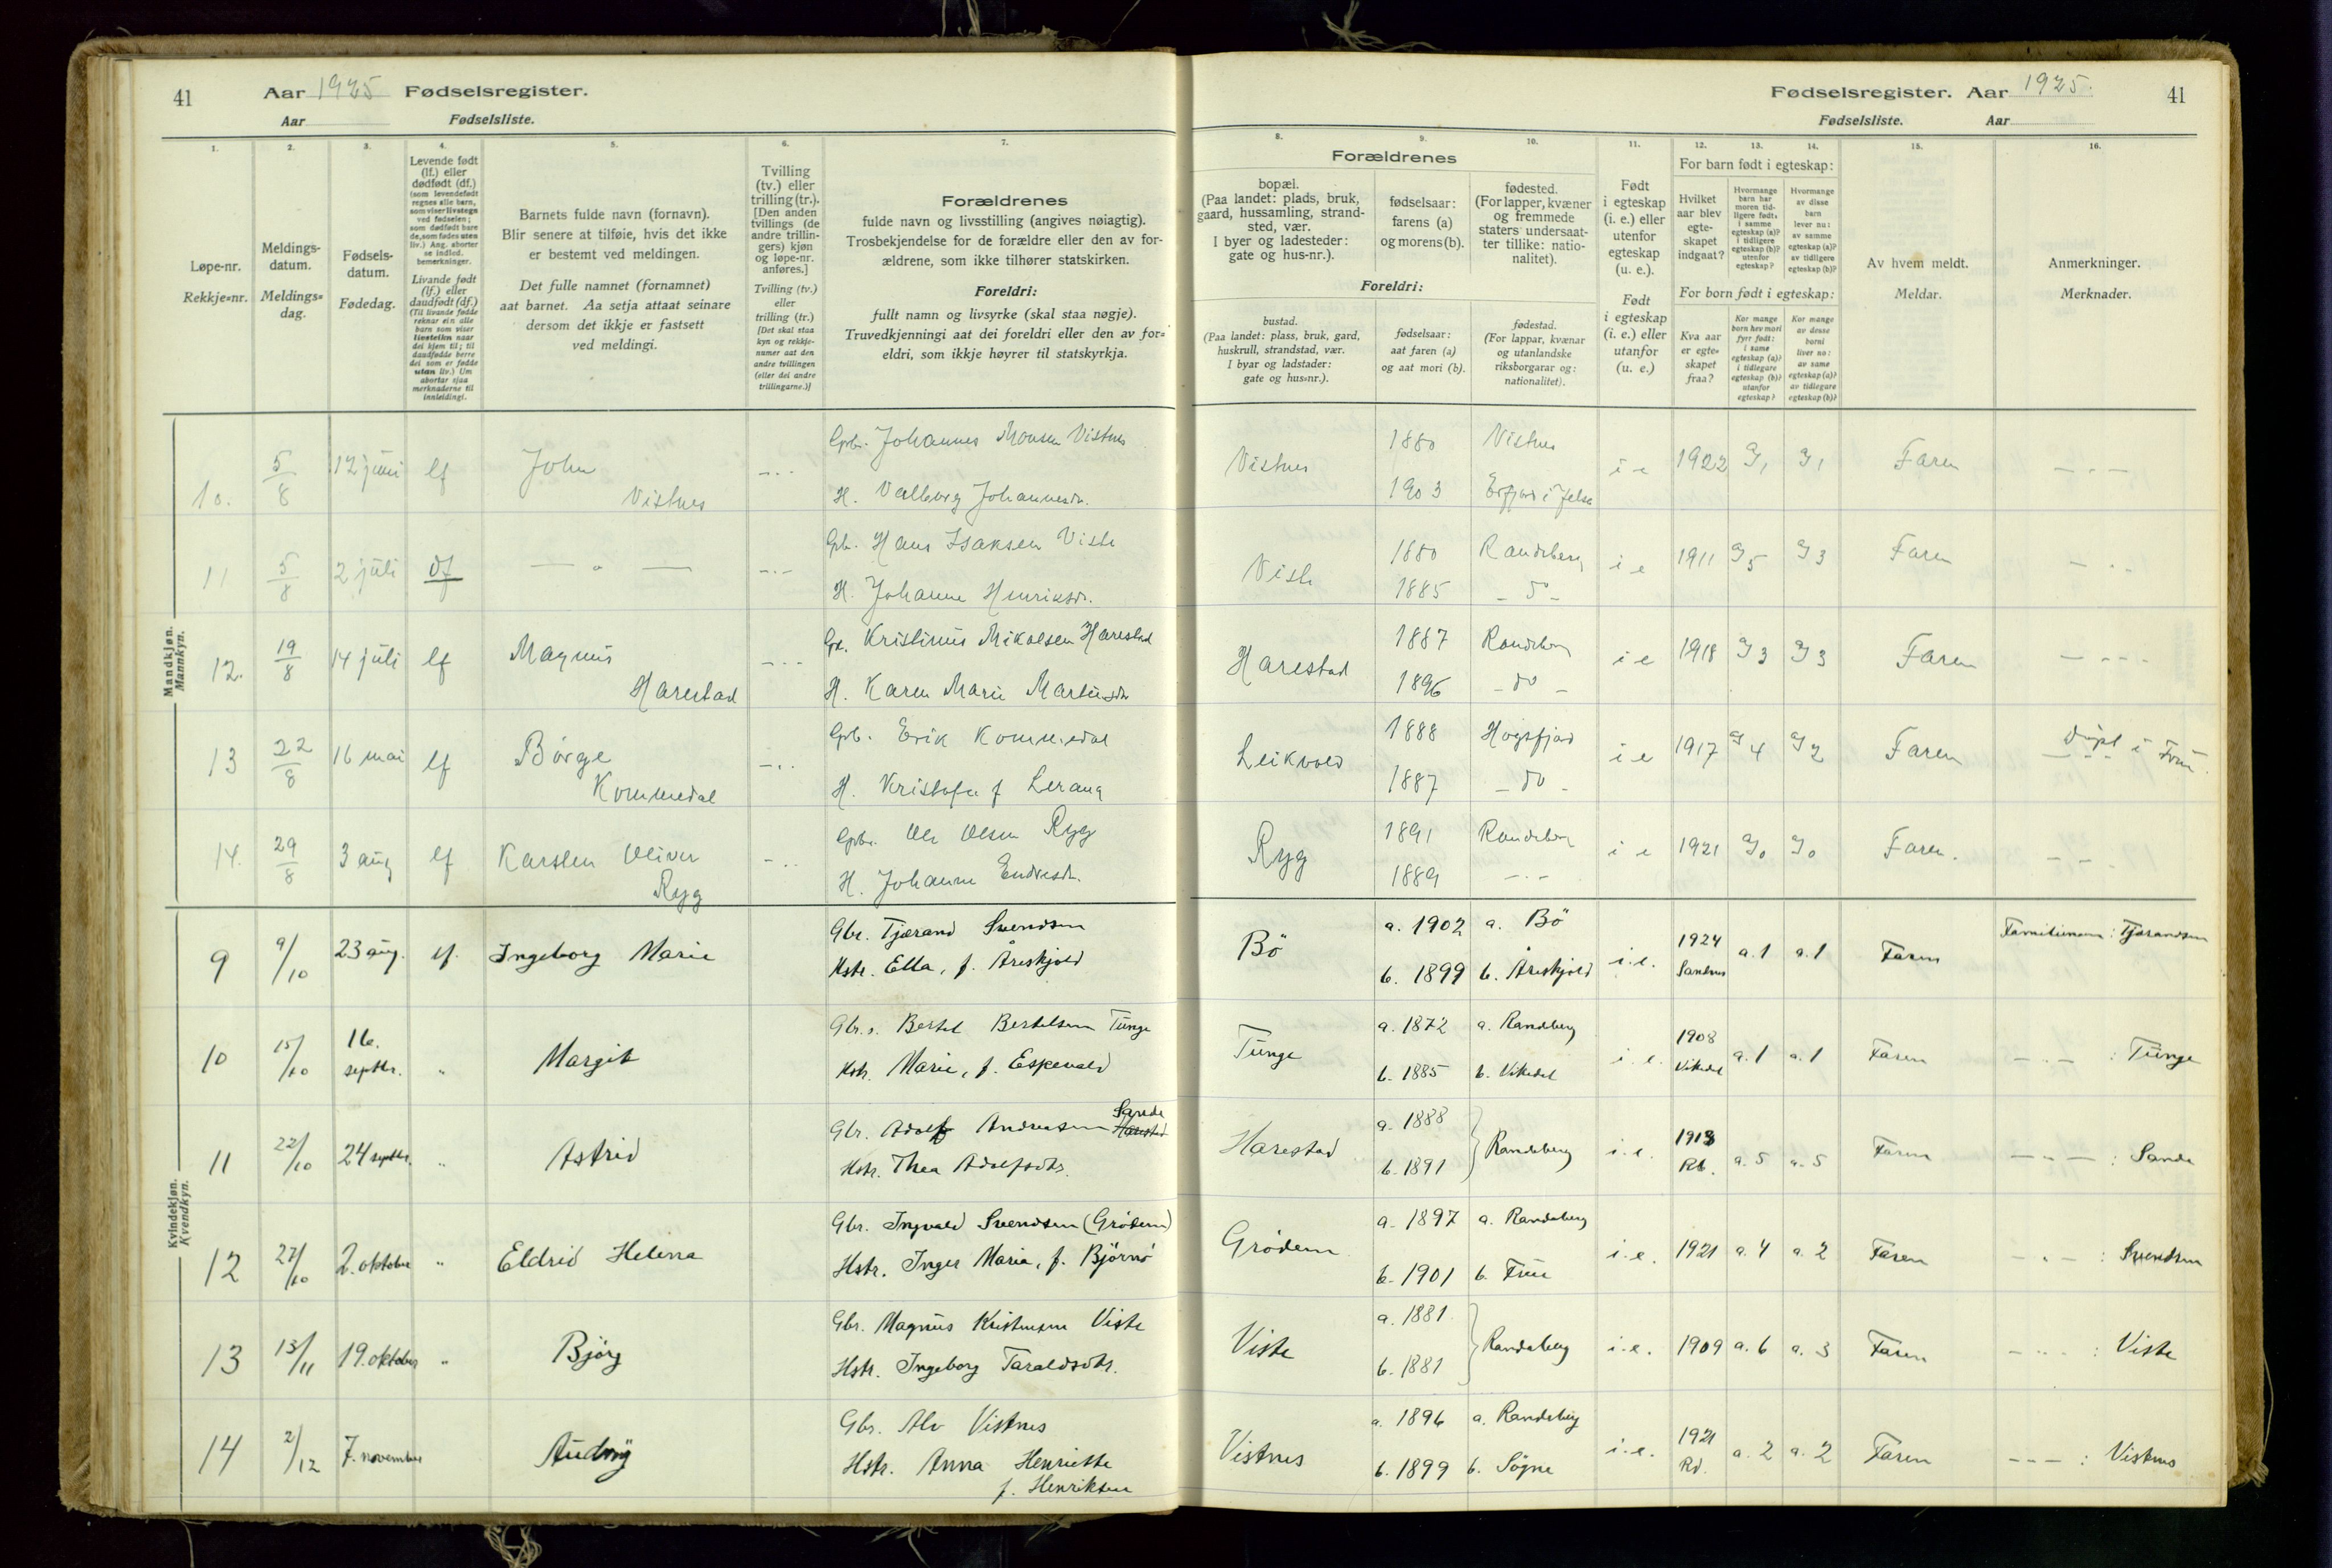 41 Aar 1925 Fødselsregister.
Aar Fødselsliste.
Fødselsregister. Aar 1925. 41
Fødselsliste. Aar
1. 2. 3. 4. 5. 6. 7. 8. 9. 10. 11. 12. 13. 14. 15. 16.
Løpe-nr.
Rekkje=nr.
Meldings-
datum.
Meldings=
dag.
Fødsels-
datum.
Fødedag.
Levende født
(lf.) eller
dødfødt (df.)
(som levendefødt
regnes alle barn,
som viser livstegn
ved fødselen;
som dødfødt bare
de, som fødes uten
liv.) Ang. aborter
se indled.
bemerkninger.
Livande født
(lf.) eller
daudfødt (df.)
(Til livande fødde
reknar ein alle
born som viser
livsteikn naar
dei kjem til; til
daudfødde berre
dei som er fødde
utan liv.) Um
abortar sjaa
merknaderne til
innleidingi.
Barnets fulde navn (fornavn).
Blir senere at tilføie, hvis det ikke
er bestemt ved meldingen.
Det fulle namnet (fornamnet)
aat barnet. Aa setja attaat seinare
dersom det ikkje er fastsett
ved meldingi.
Tvilling
(tv.) eller
trilling (tr.).
[Den anden
tvillings (de
andre trillin-
gers) kjøn
og løpe-nr.
anføres.]
Tvilling (tv.)
eller
trilling (tr.)
[Det skal staa
kyn og rekkje-
numer aat den
andre tvillingen
(eller dei andre
trillingarne.)]
Forældrenes
fulde navn og livsstilling (angives nøiagtig).
Trosbekjendelse for de forældre eller den av for-
ældrene, som ikke tilhører statskirken.
Foreldri:
fullt namn og livsyrke (skal staa nøgje).
Truvedkjenningi aat dei foreldri eller den av for=
eldri, som ikkje høyrer til statskyrkja.
Forældrenes
bopæl.
(Paa landet: plads, bruk,
gaard, hussamling, strand-
sted, vær.
I byer og ladesteder:
gate og hus-nr.).
fødselsaar:
farens (a)
og morens (b).
fødested.
(For lapper, kvæner
og fremmede
staters undersaat-
ter tillike: natio-
nalitet).
Foreldri:
bustad.
(Paa landet: plass, bruk, gard,
huskrull, strandstad, vær.
I byar og ladstader:
gate og hus=nr.).
fødselsaar:
aat faren (a)
og aat mori (b).
fødestad.
(For lappar, kvænar
og utanlandske
riksborgarar og:
nationalitet).
Født
i egteskap
(i. e.) eller
utenfor
egteskap
(u. e.).
Født
i egteskap
(i. e.) eller
utanfor
(u. e.)
For barn født i egteskap:
Hvilket
aar blev
egte-
skapet
indgaat?
Hvormange
barn har
moren tid-
ligere født:
i samme
egteskap (a)?
i tidligere
egteskap (b)?
utenfor
egteskap?
Hvormange
av disse
barn
lever nu:
av samme
egteskap (a)?
av tidligere
egteskap (b)?
For born født i egteskap:
Kva aar
er egte-
skapet
fraa?
Kor mange
born hev mori
fyrr født:
i same
egteskap (a)?
i tidlegare
egteskap (b)?
utanfor
egteskap?
Kor mange
av desse
borni
liver no:
av same
egteskap (a)?
av tidlegare
egteskap (b)?
Av hvem meldt.
Meldar.
Anmerkninger.
Merknader.
Mandkjøn.
Mannkyn.
10. 5/8 12 juni lf John Vistnes Gbr. Johannes Monsen Vistnes Vistnes 1880 Vistnes i e 1922 1 1 Faren
H. Valborg Johannesdr. 1903 Erfjord i Jelsa
11 5/8 2 juli df Gbr. Hans Isaksen Viste Viste 1880 Randeberg i e 1911 5 3 Faren
H. Johanne Henriksdr. 1885 - do -
12. 19/8 14 juli lf Magnus Harestad Gbr. Kristinius Mikalsen Harestad Harestad 1887 Randeberg i e 1918 3 3 Faren
H. Karen Marie Martinsdr 1896 - do -
13 22/8 16 mai lf Børge Kommedal Gbr. Erik Kommedal Leikvold 1888 Høgsfjord i e 1917 4 2 Faren døpt i Frue.
H. Kristofa f Lerang 1887 - do -
14. 29/8 3 aug lf Karsten Oliver Ryg Gbr. Ole Olsen Ryg Ryg 1891 Randeberg i e 1921 0 0 Faren.
H. Johanne Endresdr. 1889 - " -
Kvindekjøn.
Kvendkyn.
9 9/10 23 aug. lf. Ingeborg Marie Gbr. Tjerand Svendsen Bö a. 1902 a. Bö i.e. 1924 Sandnes a. 1 a. 1 Faren Familienavn: Tjerandsen
Hstr. Ella, f. Åreskjold b. 1899 b. Åreskjold
10 15/10 16. septbr. " Margit Gbr. Bertel Bertelsen Tunge Tunge a. 1872 a. Randeberg i.e. 1908 Vikedal a. 1 a. 1 Faren - " - : Tunge
Hstr. Marie, f. Espevold b. 1885 b. Vikedal
11 22/10 24 septbr. " Astrid Gbr. Adolf Andreasen Harestad Sande Harestad a. 1888 Randeberg i.e. 1913 Rb. a. 5 a. 5 Faren - " - : Sande
Hstr. Thea Adolfsdtr. b. 1891
12 27/10 2. oktober " Eldrid Helena Gbr. Ingvald Svendsen (Grödem) Grödem a. 1897 a. Randeberg i.e. 1921 a. 4 a. 2 Faren - " - : Svendsen
Hstr. Inger Marie, f. Björnö b. 1901 b. Frue
13 13/11 19. oktober " Bjørg Gbr. Magnus Kristensen Viste Viste a. 1881 Randeberg i.e. 1909 a. 6 a. 3 Faren - " - : Viste
Hstr. Ingeborg Taraldsdtr. b. 1881
14 2/12 7. november Audny Gbr. Alv Vistnes Vistnes a. 1896 a. Randeberg i.e. 1921 Rd. a. 2 a. 2 Faren - - - : Vistnes
Hstr. Anna Henriette b. 1899 b. Søgne
f. Henriksen